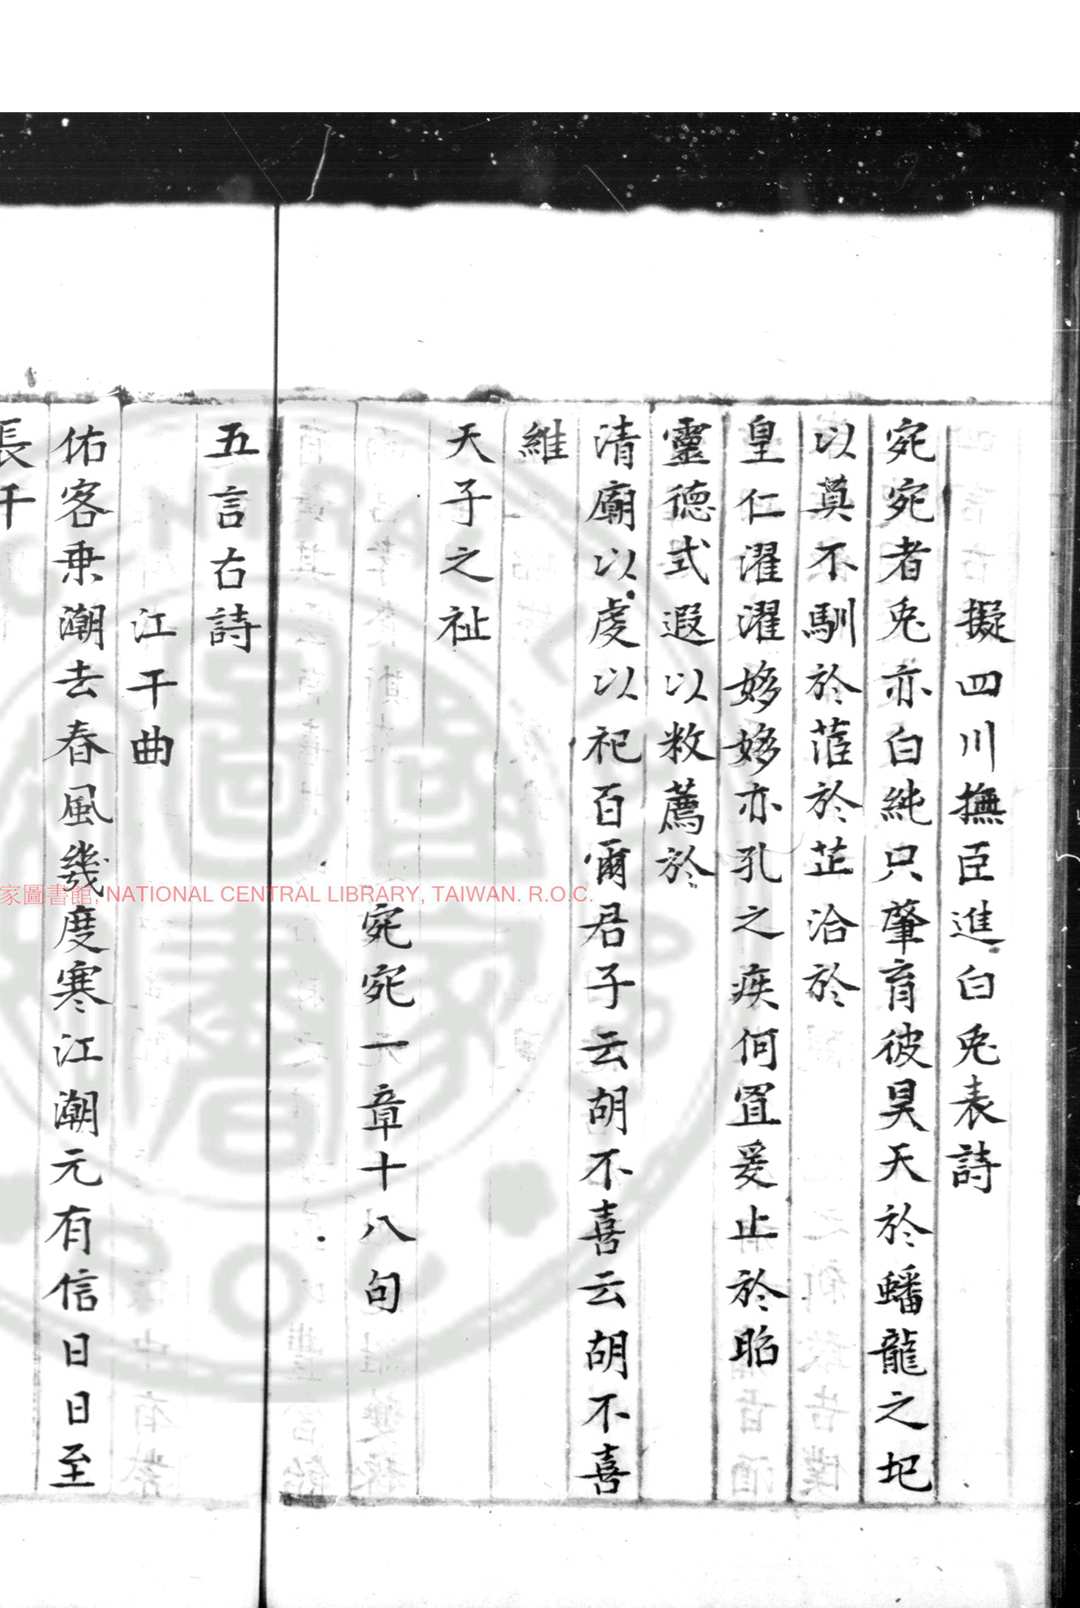 擬四川撫臣進白兎表詩
宛宛者兎亦白純只肇育彼昊天於蟠龍之圯
以奠不馴於藿於芷洽於
皇仁濯濯姼姼亦孔之疾何罝爰止於眙
靈德式遐以敉薦於
清廟以虔以祀百爾君子云胡不喜云胡不喜
維
天子之祉
宛宛一章十八句
五言右詩
江干曲
佑客乗潮去春風幾度寒江潮元有信日日至
長干
家圖書館, NATIONAL CENTRAL LIBRARY, TAIWAN. R.O.C.